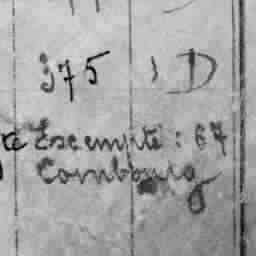 375 D
Exempté : 67
Combourg